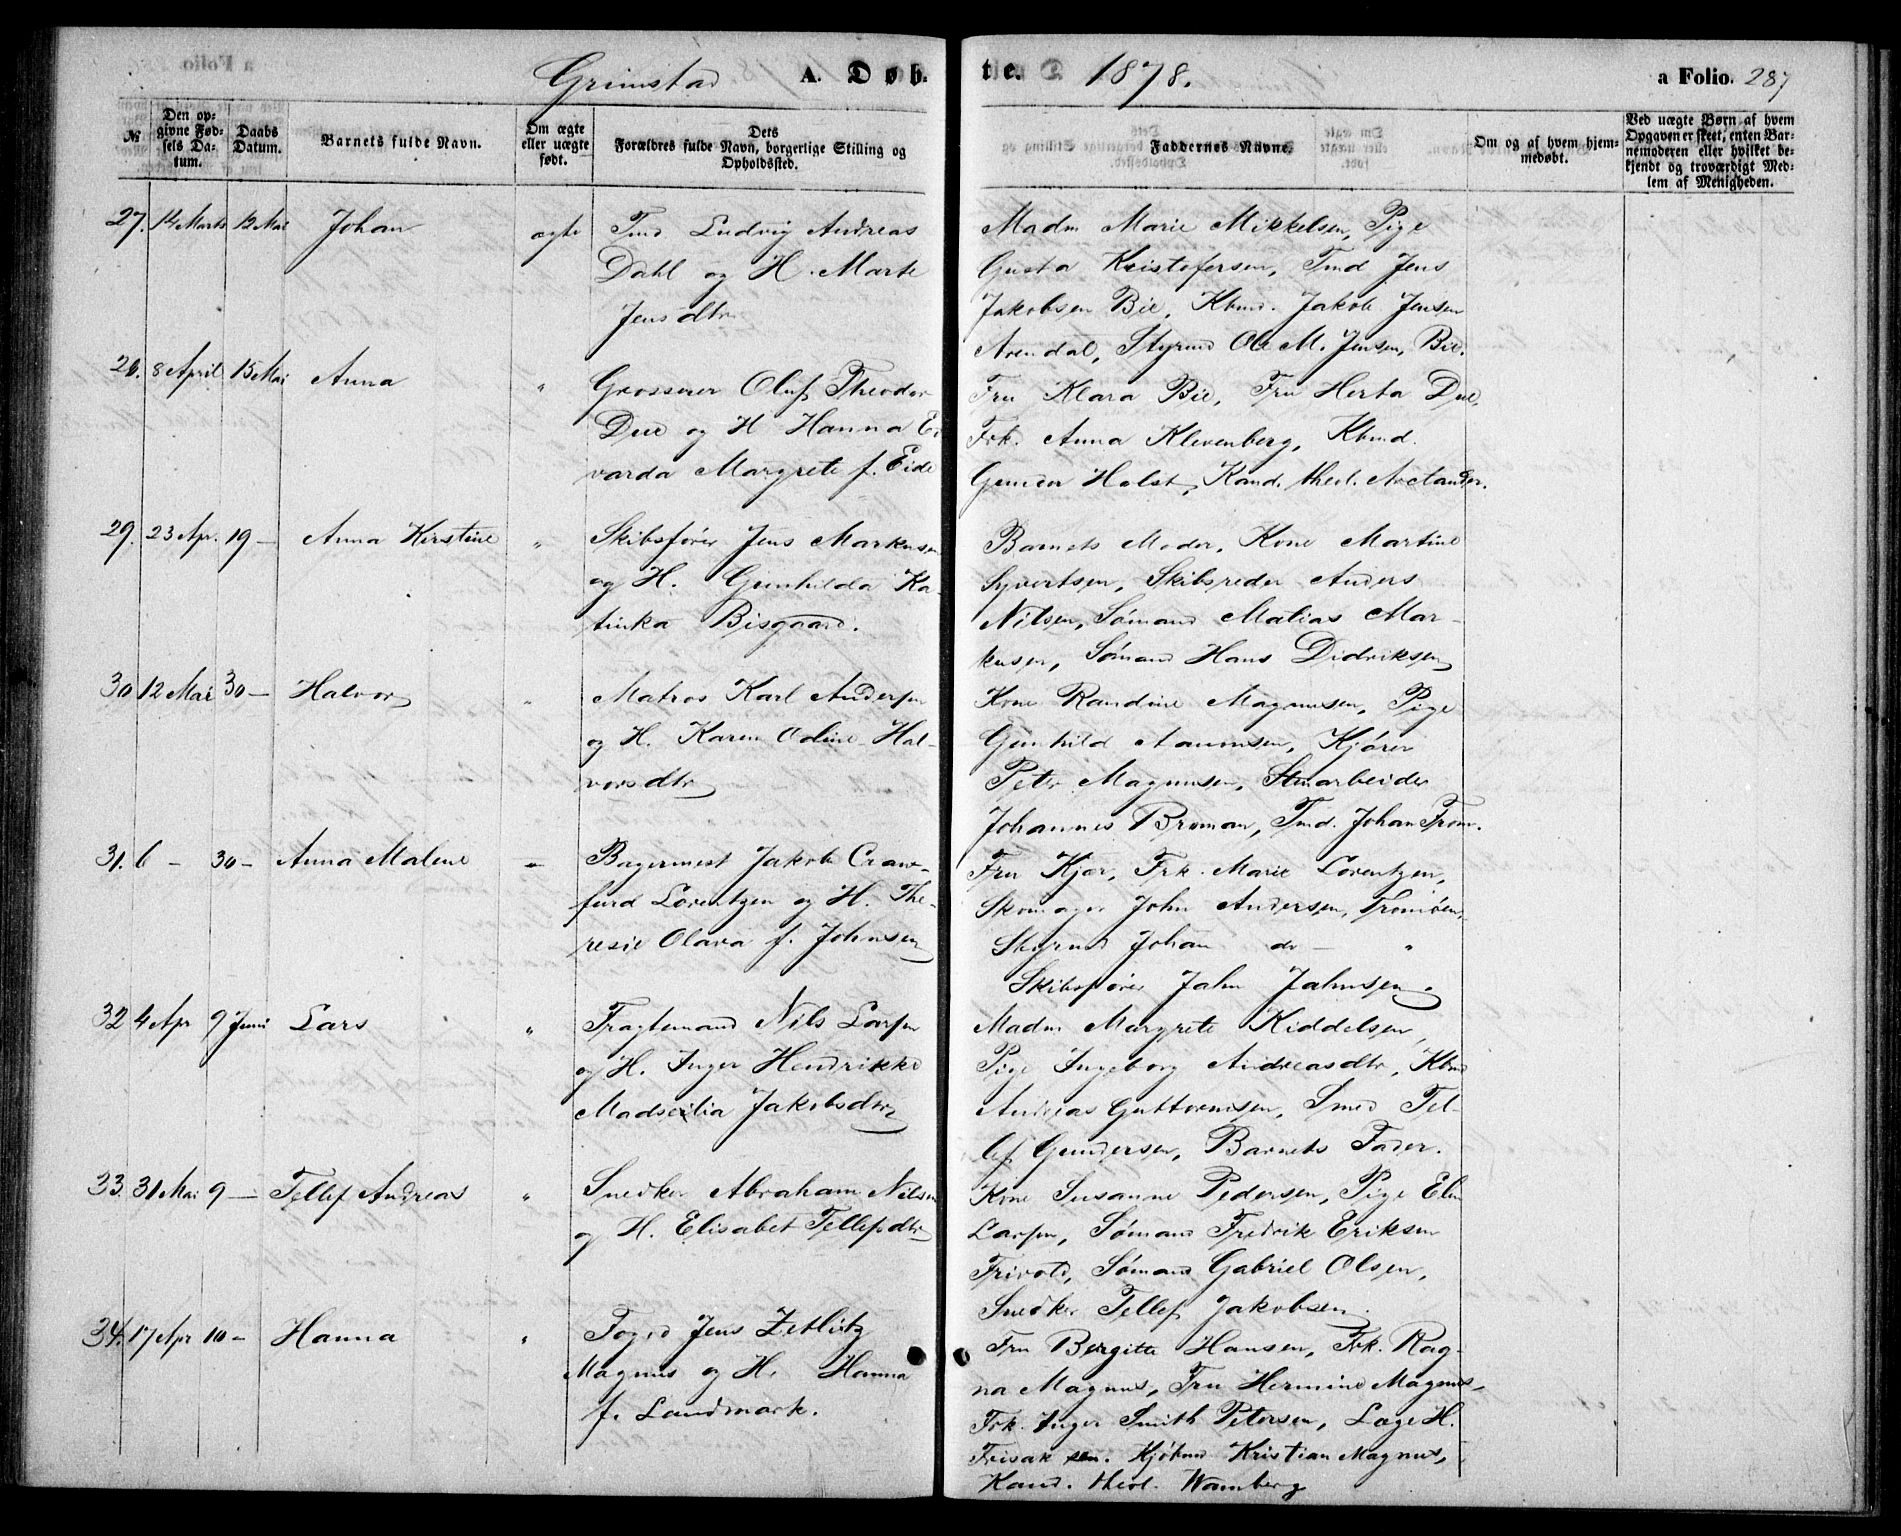 Grimstad A. Døb- te. 1878. a Folio. 287
№
Den opgivne Fødsels Datum.
Daabs Datum.
Barnets fulde Navn.
Om ægte eller uægte født.
Dets Forældres fulde Navn, borgerlige Stilling og Opholdssted.
Faddernes Navne.
Om og af hvem hjemmedøbt.
Ved uægte Børn af hvem Opgaven er skeet, enten Barnemoderen eller hvilket bekjendt og troværdigt Medlem af Menigheden.
27. 14 Marts 12 Mai Johan ægte Tmd Ludvig Andreas
Dahl og H. Marte
Jensdtr
Madm Marie Mikkelsen, Pige
Gusta Kristofersen, Tmd Jens
Jakobsen Bie, Kbmd. Jakob Jensen
Arendal, Styrmd Ole M. Jensen, Bie.
28. 8 April 15 Mai Anna " Grosserer Oluf Theodor
Due og H Hanna E-
varda Margrete f. Eide
Fru Klara Bie, Fru Herta Due,
Frk. Anna Klevenberg, Kbmd.
Gunder Holst, Kand. theol. Arctander.
29. 23 Apr. 19 — Anna Kirstine " Skibsfører Jens Markusen
og H. Gunhilda Ka-
tinka Bisgaard.
Barnets Moder, Kone Martine
Syvertsen, Skibsreder Anders
Nilsen, Sømand Matias Mar-
kusen, Sømand Hans Didriksen
30 12 Mai 30 — Halvor " Matros Karl Andersen
og H. Karen Oline Hal-
vorsdtr
Kone Randine Magnusen, Pige
Gunhild Aanonsen, Kjører
Peter Magnusen, Stenarbeider
Johannes Broman, Tmd. Johan From.
31. 6 — 30 — Anna Malene — Bagermest Jakob Craw-
furd Lorentzen og H. The-
resie Olava f. Johnsen
Fru Kjær, Frk. Marie Lorentzen,
Skomager John Andersen, Tromøen,
Styrmd Johan do — "
Skibsfører Jahn Jahnsen.
32 4 Apr 9 Juni Lars " Fragtemand Nils Larsen
og H. Inger Hendrikke
Madscilia Jakobsdtr
Madm Margrete Kiddelsen,
Pige Ingeborg Andreasdtr, Kbmd
Andreas Guttormsen, Smed Tel-
lef Gundersen, Barnets Fader.
33. 31 Mai 9 — Tellef Andreas " Snedker Abraham Nilsen
og H. Elisabet Tellefsdtr
Kone Susanne Pedersen, Pige Elen
Larsen, Sømand Fredrik Eriksen
Frivold, Sømand Gabriel Olsen,
Snedker Tellef Jakobsen.
34. 17 Apr 10 — Hanna " Foged Jens Zetlitz
Magnus og H. Hanna
f. Landmark.
Fru Bergitte Hansen, Frk. Rag-
na Magnus, Fru Hermine Magnus,
Frk. Inger Smith Petersen, Læge H.
Frisak sen. Kjøbmd Kristian Magnus,
Kand. theol. Wamberg